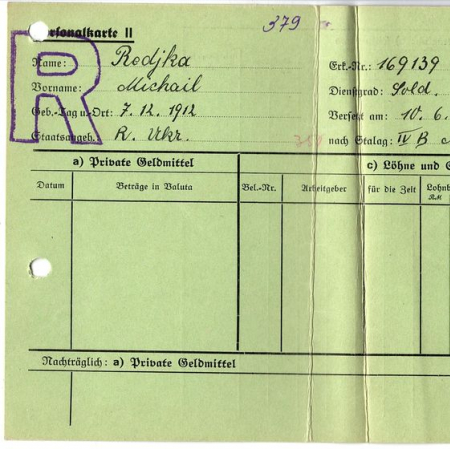 379
Personalkarte II
R
Name: Redjka Erk.-Nr.: 169139
Vorname: Michail Dienstgrad: Sold.
Geb.-Tag u. Ort: 7.12.1912 Versetzt am: 10.6.
Staatsangeh. R. Ukr. nach Stalag: IV B
a) Private Geldmittel c) Löhne und G
Datum Beträge in Valuta Bel.-Nr. Arbeitgeber für die Zeit Lohnb
RM
Nachträglich: a) Private Geldmittel